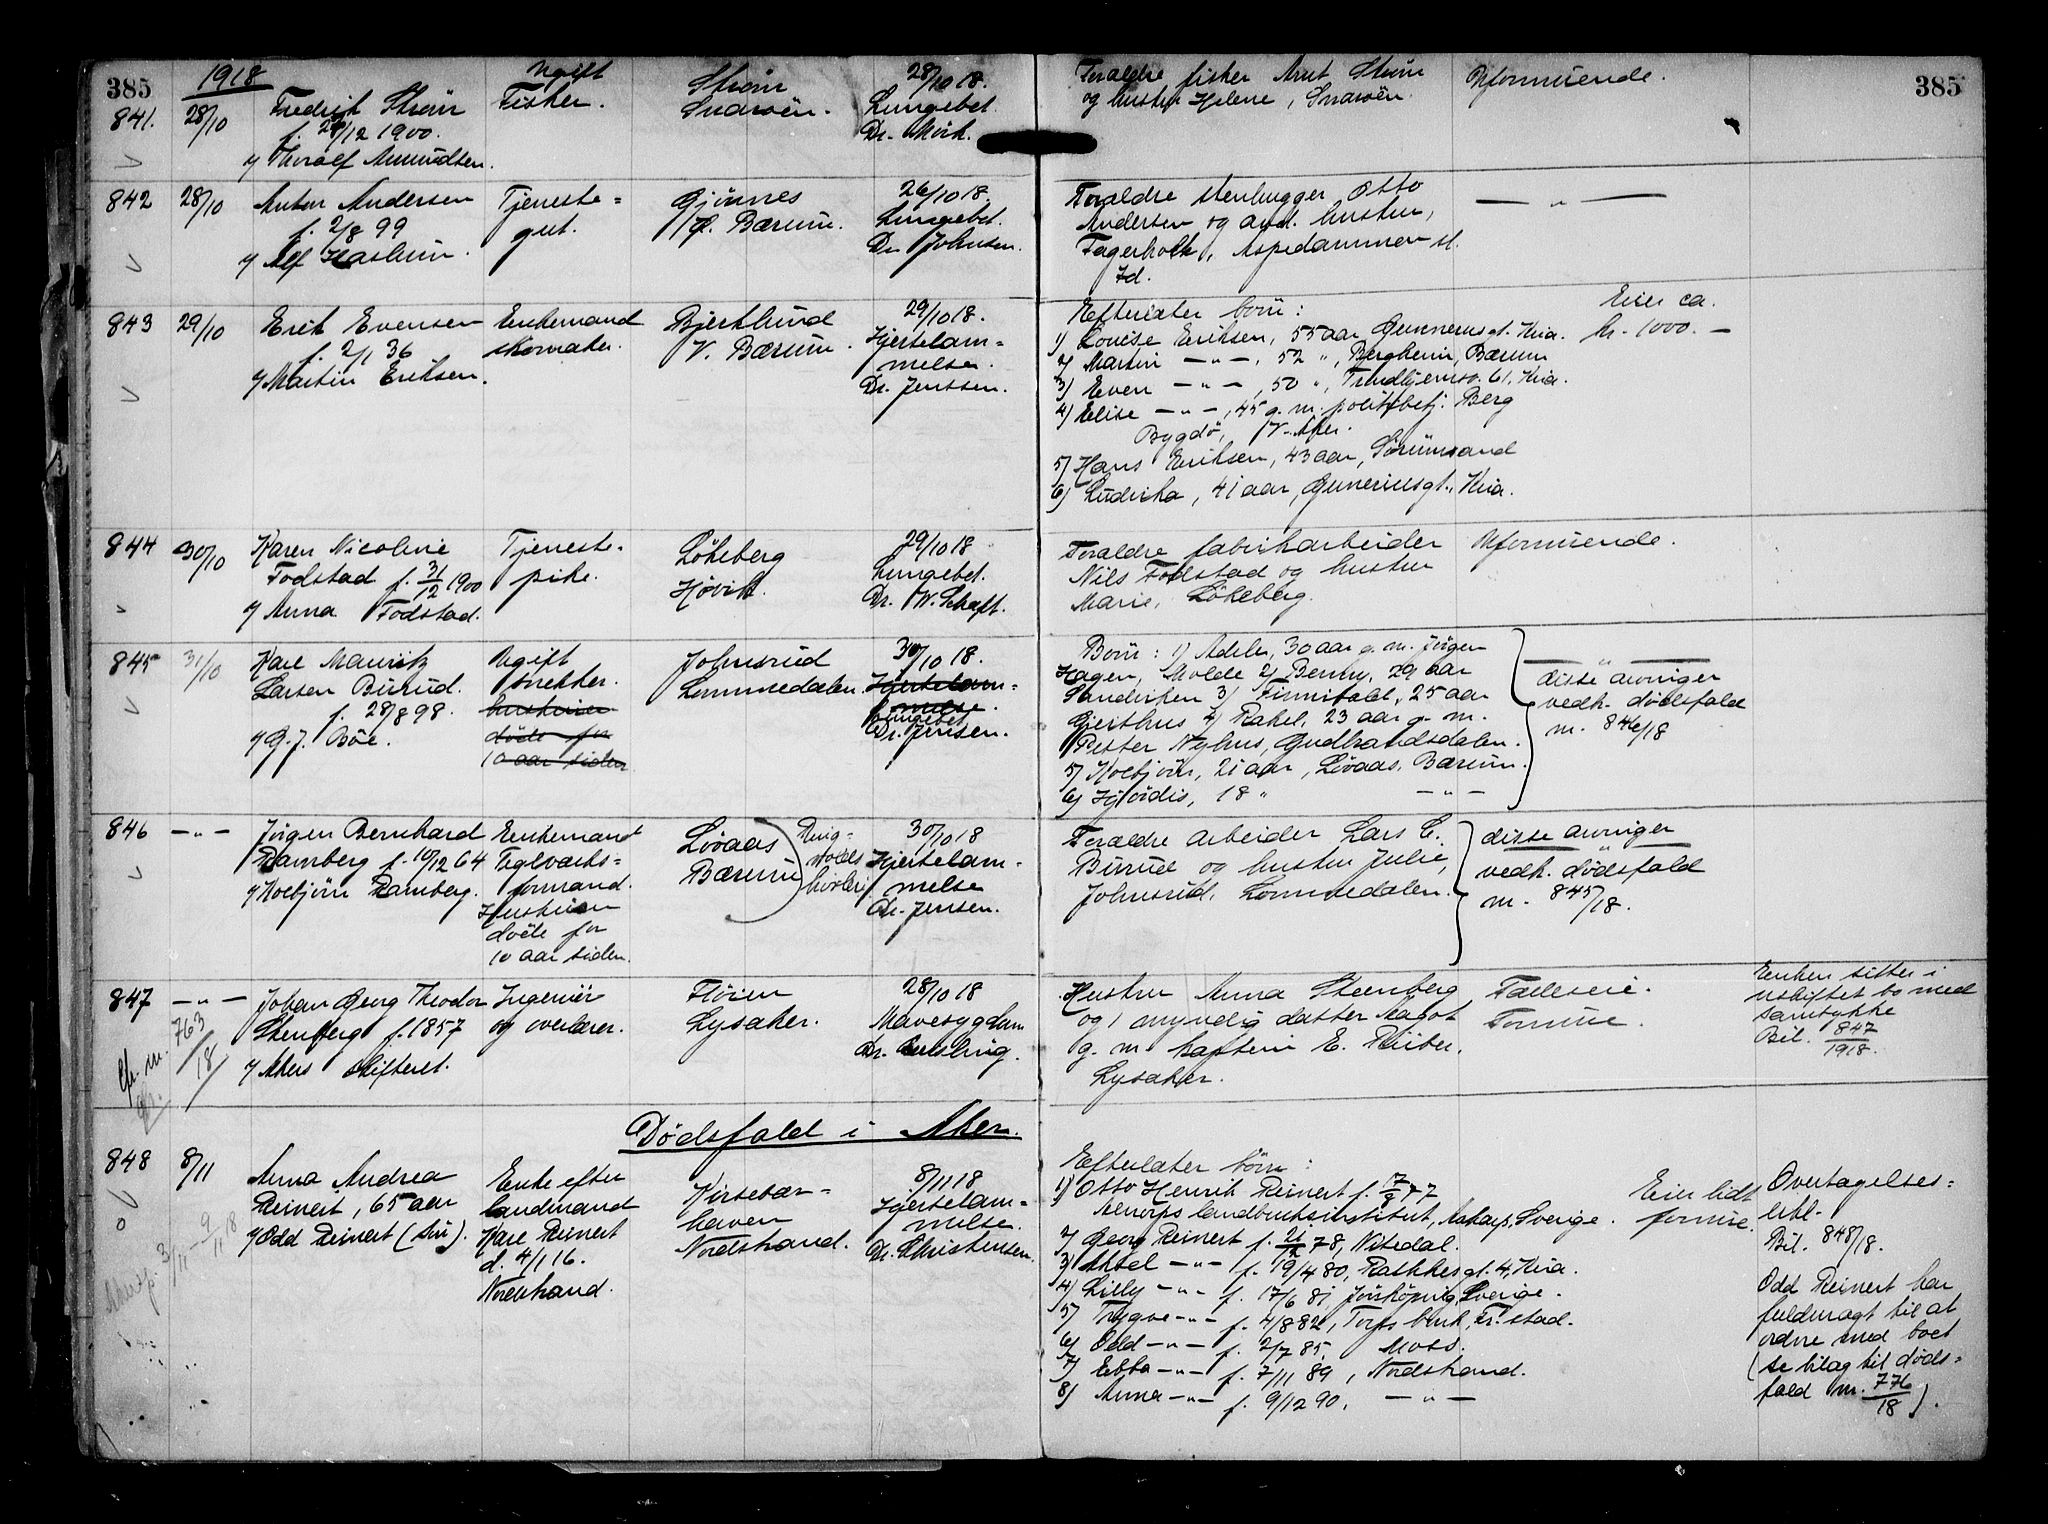 385
1918
841.
28/10
Fredrik Strøm
f. 24/12 1900.
v/ Thoralf Amundsen.
Ugift
Fisker.
Strøm
Snarøen.
28/10 18.
Lungebet.
Dr. Mörk.
Forældre fisker Arnt Strøm
og hustru Helene, Snarøen.
Uformuende.
385
842
28/10
Anton Andersen
f. 2/8 99
v/ Alf Haslum.
Tjeneste=
gut.
Gjønnes
Ø. Bærum.
26/10 18.
Lungebet.
Dr. Johnsen.
Forældre stenhugger Otto
Andersen og avd. hustru,
Fagerholt, Aspedammen st.
Id.
— " —
843
29/10
Erik Evensen
f. 2/1 36
v/ Martin Eriksen.
Enkemand
skomaker.
Bjerklund
V. Bærum.
29/10 18.
Hjertelam=
melse.
Dr. Jenssen.
Efterlater born:
1) Lovise Eriksen, 55 aar, Gunnerusgt. Kria.
2) Martin — " —, 52 ", Bergheim, Bærum
3) Even — " —, 50 ", Trondhjemsv. 61, Kria.
4) Elise — " —, 45 g. m. politibetj. Berg
Bygdø, V. Aker.
5) Hans Eriksen, 43 aar, Sørumsand
6) Ludvika, 41 aar, Guneriusgt., Kria.
Eier ca.
kr. 1000. —
844
30/10
Karen Nicoline
Fodstad f. 31/12 1900
v/ Anna Fodstad.
Tjeneste-
pike.
Løkeberg
Høvik.
29/10 18
Lungebet.
Dr. W. Schaft.
Forældre fabrikarbeider
Nils Fodstad og hustru
Marie, Løkeberg.
Uformuende.
845
31/10
Karl Mauritz
Larsen Burud.
f. 28/8 98.
v/ G. J. Bøe.
Ugift
snekker.
hustruen
døde for
10 aar siden
Johnsrud
Lommedalen.
30/10 18.
Hjertelam=
melse.
Lungebet.
Dr. Jensen.
Born: 1) Adele, 30 aar g. m. Jørgen
Hagen, Molde 2) Benny, 29 aar
Sandviken 3) 25 aar
Gjerthus 4) Rakel, 23 aar g. m.
Petter Nyhus, Gudbrandsdalen.
5) Kolbjørn, 21 aar, Løvaas, Bærum.
6) Hjørdis, 18 " — " —
— " —
disse avviger
vedk. dødsfald
nr. 846/18
846
— " —
Jørgen Bernhard
Ramberg f. 10/12 64
v/ Kolbjørn Ramberg.
Enkemand
Teglværks=
formand.
Hustruen
døde for
10 aar siden.
Løvaas
Bærum
30/10 18
Hjertelam=
melse
Dr. Jensen.
Forældre arbeider Lars C.
Burud og hustru Julie,
Johnsrud, Lommedalen.
disse avviger
vedk. dødsfald
nr. 845/18.
847
— " —
cfr. nr. 763/18
Johan Georg Theodor
Stenberg f. 1857
v/ Akers skifteret.
Ingeniør
og overlærer.
Fløien
Lysaker.
28/10 18
Mavesygdom
Dr.
Hustru Anna Steenberg
og 1 myndig datter Aagot
g. m. kaptein E. Rieber,
Lysaker.
Fælleseie.
Formue.
Enken sitter i
uskiftet bo med
samtykke
Bil. 847/1918.
Dødsfald i Aker.
848
8/11
Anna Andrea
Reinert, 65 aar
v/ Odd Reinert (søn).
Enke efter
landmand
Karl Reinert
d. 4/1 16.
Nordstrand.
Kirsebær=
haven
Nordstrand.
8/11 18
Hjertelam=
melse.
Dr. Christensen.
Efterlater børn:
1) Otto Henrik Reinert f. 17/8 77
Alnarps landbruksinstitut, Sverige.
2) Georg Reinert f. 21/12 78, Nitedal.
3) Aksel — " — f. 19/4 80, Rathkesgt. 4, Kria.
4) Lilly — " — f. 17/6 81, Jönköping, Sverige.
5) Trygve — " — f. 4/8 82, Torps bruk, Fr. stad.
6) Odd — " — f. 2/7 85, Moss.
7) Ebba — " — f. 7/11 89, Nordstrand.
8) Anna — " — f. 9/12 90, — " —
Eier lidt
formue.
Overtagelses=
erkl.
Bil. 848/18.
Odd Reinert har
fuldmagt til at
ordne med boet
(se bilag til døds=
fald nr. 776/18).